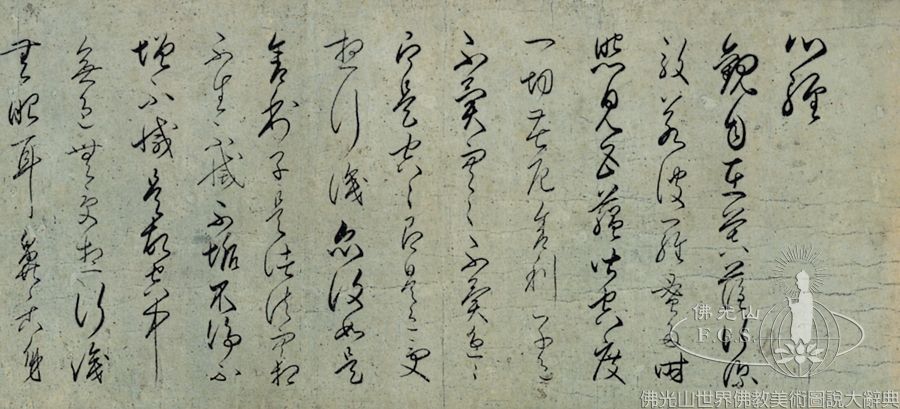 心經
觀自在菩薩行深
般若波羅蜜多時
照見五蘊皆空度
一切苦厄舍利子色
不異空〻不異色〻
即是空〻即是色受
想行識亦復如是
舍利子是諸法空相
不生不滅不垢不淨不
增不減是故空中
無色無受想行識
無眼耳鼻舌身
佛光山
F.G.S.
佛光山世界佛教美術圖說大辭典